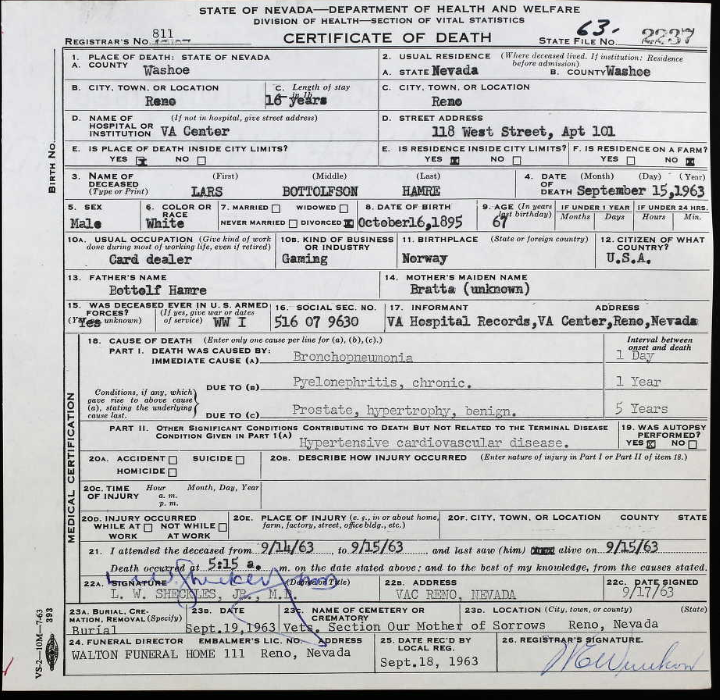 STATE OF NEVADA—DEPARTMENT OF HEALTH AND WELFARE
DIVISION OF HEALTH—SECTION OF VITAL STATISTICS
REGISTRAR'S NO. 811
CERTIFICATE OF DEATH
STATE FILE NO. 63- 2237
BIRTH NO.
1. PLACE OF DEATH: STATE OF NEVADA
A. COUNTY Washoe
2. USUAL RESIDENCE (Where deceased lived. If institution: Residence before admission)
A. STATE Nevada B. COUNTY Washoe
B. CITY, TOWN, OR LOCATION
Reno
C. Length of stay in 1b
16 years
C. CITY, TOWN, OR LOCATION
Reno
D. NAME OF HOSPITAL OR INSTITUTION (If not in hospital, give street address)
VA Center
D. STREET ADDRESS
118 West Street, Apt 101
E. IS PLACE OF DEATH INSIDE CITY LIMITS?
YES NO
E. IS RESIDENCE INSIDE CITY LIMITS?
YES NO
F. IS RESIDENCE ON A FARM?
YES NO
3. NAME OF DECEASED (Type or Print)
(First) (Middle) (Last)
LARS BOTTOLFSON HAMRE
4. DATE OF DEATH (Month) (Day) (Year)
September 15,1963
5. SEX
Male
6. COLOR OR RACE
White
7. MARRIED WIDOWED
NEVER MARRIED DIVORCED
8. DATE OF BIRTH
October16,1895
9. AGE (In years last birthday)
67
IF UNDER 1 YEAR
Months Days
IF UNDER 24 HRS.
Hours Min.
10A. USUAL OCCUPATION (Give kind of work done during most of working life, even if retired)
Card dealer
10B. KIND OF BUSINESS OR INDUSTRY
Gaming
11. BIRTHPLACE (State or foreign country)
Norway
12. CITIZEN OF WHAT COUNTRY?
U.S.A.
13. FATHER'S NAME
Bottolf Hamre
14. MOTHER'S MAIDEN NAME
Bratta (unknown)
15. WAS DECEASED EVER IN U.S. ARMED FORCES?
(If yes, give war or dates of service)
Yes unknown) WW I
16. SOCIAL SEC. NO.
516 07 9630
17. INFORMANT ADDRESS
VA Hospital Records,VA Center,Reno,Nevada
MEDICAL CERTIFICATION
18. CAUSE OF DEATH (Enter only one cause per line for (a), (b), (c).)
Interval between onset and death
PART I. DEATH WAS CAUSED BY:
IMMEDIATE CAUSE (A) Bronchopneumonia 1 Day
Conditions, if any, which gave rise to above cause (a), stating the underlying cause last.
DUE TO (B) Pyelonephritis, chronic. 1 Year
DUE TO (C) Prostate, hypertrophy, benign. 5 Years
PART II. OTHER SIGNIFICANT CONDITIONS CONTRIBUTING TO DEATH BUT NOT RELATED TO THE TERMINAL DISEASE CONDITION GIVEN IN PART I(A)
Hypertensive cardiovascular disease.
19. WAS AUTOPSY PERFORMED?
YES NO
20A. ACCIDENT SUICIDE
HOMICIDE
20B. DESCRIBE HOW INJURY OCCURRED (Enter nature of injury in Part I or Part II of item 18.)
20C. TIME OF INJURY Hour Month, Day, Year
a. m.
p. m.
20D. INJURY OCCURRED
WHILE AT WORK NOT WHILE AT WORK
20E. PLACE OF INJURY (e. g., in or about home, farm, factory, street, office bldg., etc.)
20F. CITY, TOWN, OR LOCATION COUNTY STATE
21. I attended the deceased from 9/14/63 to 9/15/63 and last saw (him) alive on 9/15/63
Death occurred at 5:15 a. m. on the date stated above; and to the best of my knowledge, from the causes stated.
22A. SIGNATURE (Degree or Title)
L. W. SHECKLES, JR., M.D.
22B. ADDRESS
VAC RENO, NEVADA
22C. DATE SIGNED
9/17/63
23A. BURIAL, CREMATION, REMOVAL (Specify)
Burial
23B. DATE
Sept.19,1963
23C. NAME OF CEMETERY OR CREMATORY
Vets. Section Our Mother of Sorrows
23D. LOCATION (City, town, or county) (State)
Reno, Nevada
24. FUNERAL DIRECTOR EMBALMER'S LIC. NO. ADDRESS
WALTON FUNERAL HOME 111 Reno, Nevada
25. DATE REC'D BY LOCAL REG.
Sept.18, 1963
26. REGISTRAR'S SIGNATURE.
VS-2—10M—7-63
393